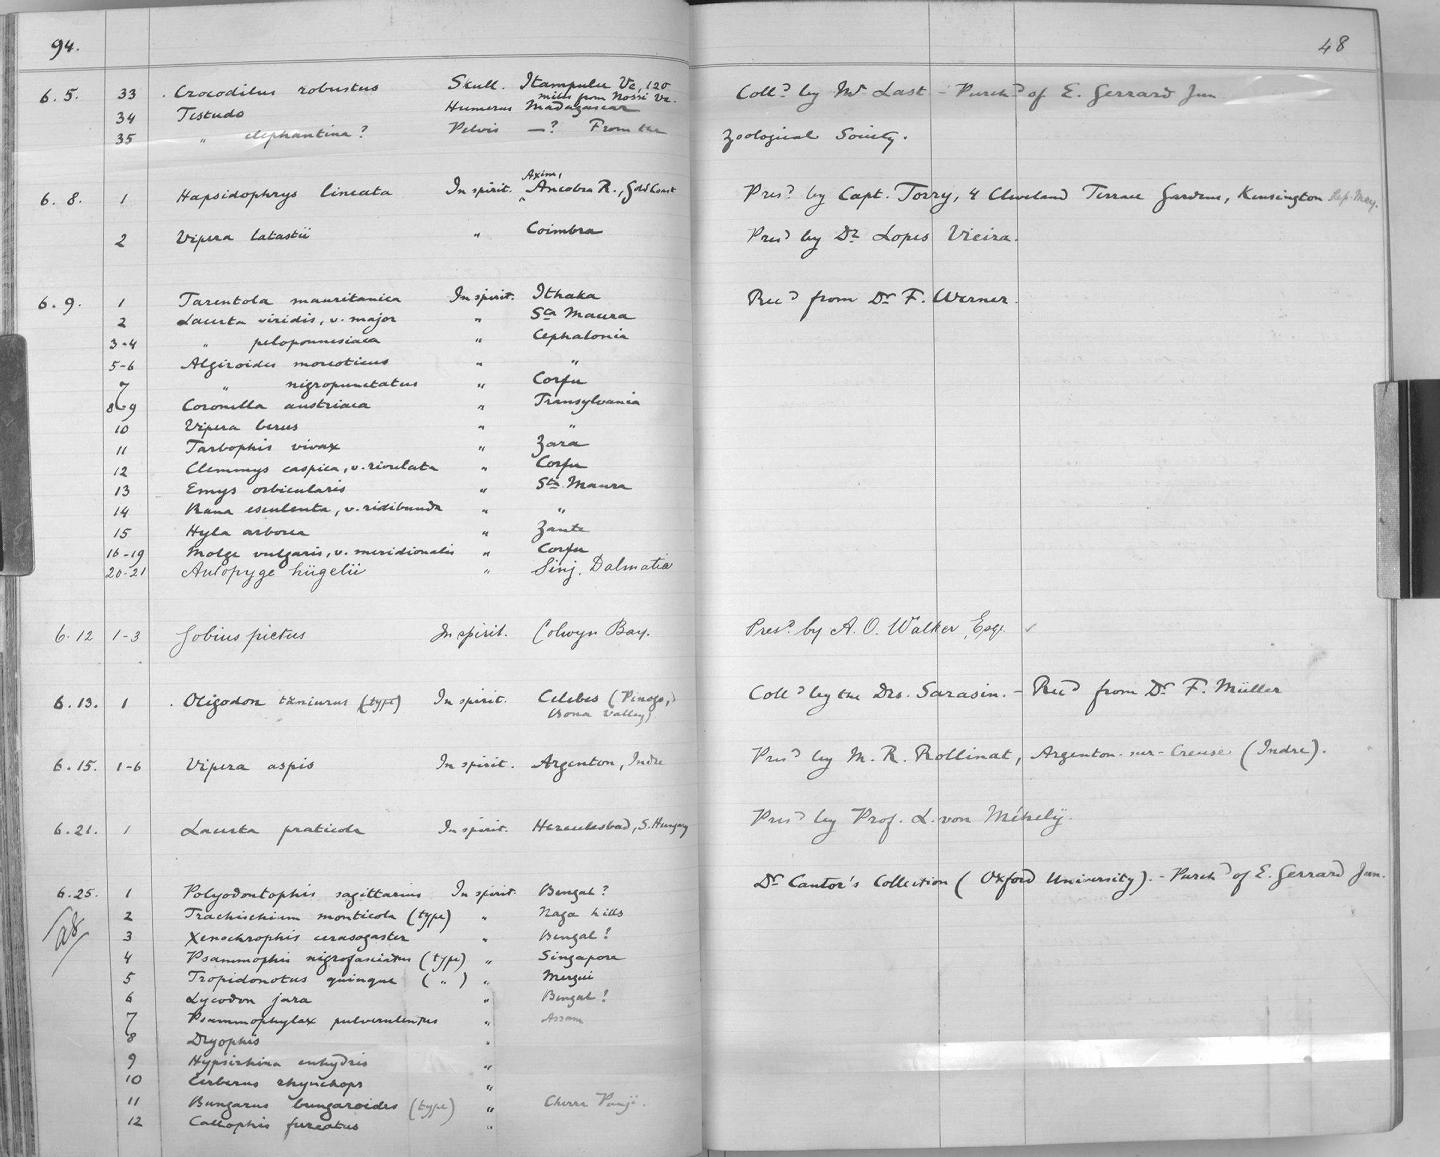 94.
48
6. 5. 33 . Crocodilus robustus Skull. Itampulu Ve, 120 miles from Nossi Ve. Coll.d by Mr Last - Purch.d of E. Gerrard Jun
34 Testudo Humerus Madagascar
35 " elephantina? Pelvis —? From the Zoological Society.
6. 8. 1 Hapsidophrys lineata In spirit. Axim, Ancobra R., Gold Coast Pres.d by Capt. Torry, 4 Cleveland Terrace Gardens, Kensington
2 Vipera latastii " Coimbra Pres.d by Dr. Lopes Vieira.
6. 9. 1 Tarentola mauritanica In spirit. Ithaka Rec.d from Dr. F. Werner.
2 Lacerta viridis, v. major " Sta Maura
3-4 " peloponnesiaca " Cephalonia
5-6 Algiroides moreoticus " "
7 " nigropunctatus " Corfu
8-9 Coronella austriaca " Transylvania
10 Vipera berus " "
11 Tarbophis vivax " Zara
12 Clemmys caspica, v. rivulata " Corfu
13 Emys orbicularis " Sta Maura
14 Rana esculenta, v. ridibunda " "
15 Hyla arborea " Zante
16-19 Molge vulgaris, v. meridionalis " Corfu
20-21 Aulopyge hügelii " Sinj. Dalmatia
6. 12 1-3 Gobius pictus In spirit. Colwyn Bay. Pres.d by A. O. Walker, Esq.
6. 13. 1 . Oligodon tæniurus (type) In spirit. Celebes (Pinogo, Bona Valley) Coll.d by the Drs. Sarasin. - Rec.d from Dr. F. Müller
6. 15. 1-6 Vipera aspis In spirit. Argenton, Indre Pres.d by M. R. Rollinat, Argenton-sur-Creuse (Indre).
6. 21. 1 Lacerta praticola In spirit. Herculesbad, S. Hungary Pres.d by Prof. L. von Méhelÿ.
6. 25. 1 Polyodontophis sagittarius In spirit. Bengal? Dr. Cantor's Collection (Oxford University). - Purch.d of E. Gerrard Jun.
2 Trachischium monticola (type) " Naga hills
3 Xenochrophis cerasogaster " Bengal?
4 Psammophis nigrofasciatus (type) " Singapore
5 Tropidonotus quinque ( " ) " Mergui
6 Lycodon jara " Bengal?
7 Psammophylax pulverulentus " Assam
8 Dryophis "
9 Hypsirhina enhydris "
10 Cerberus rhynchops "
11 Bungarus bungaroides (type) " Cherra Punji.
12 Callophis furcatus "